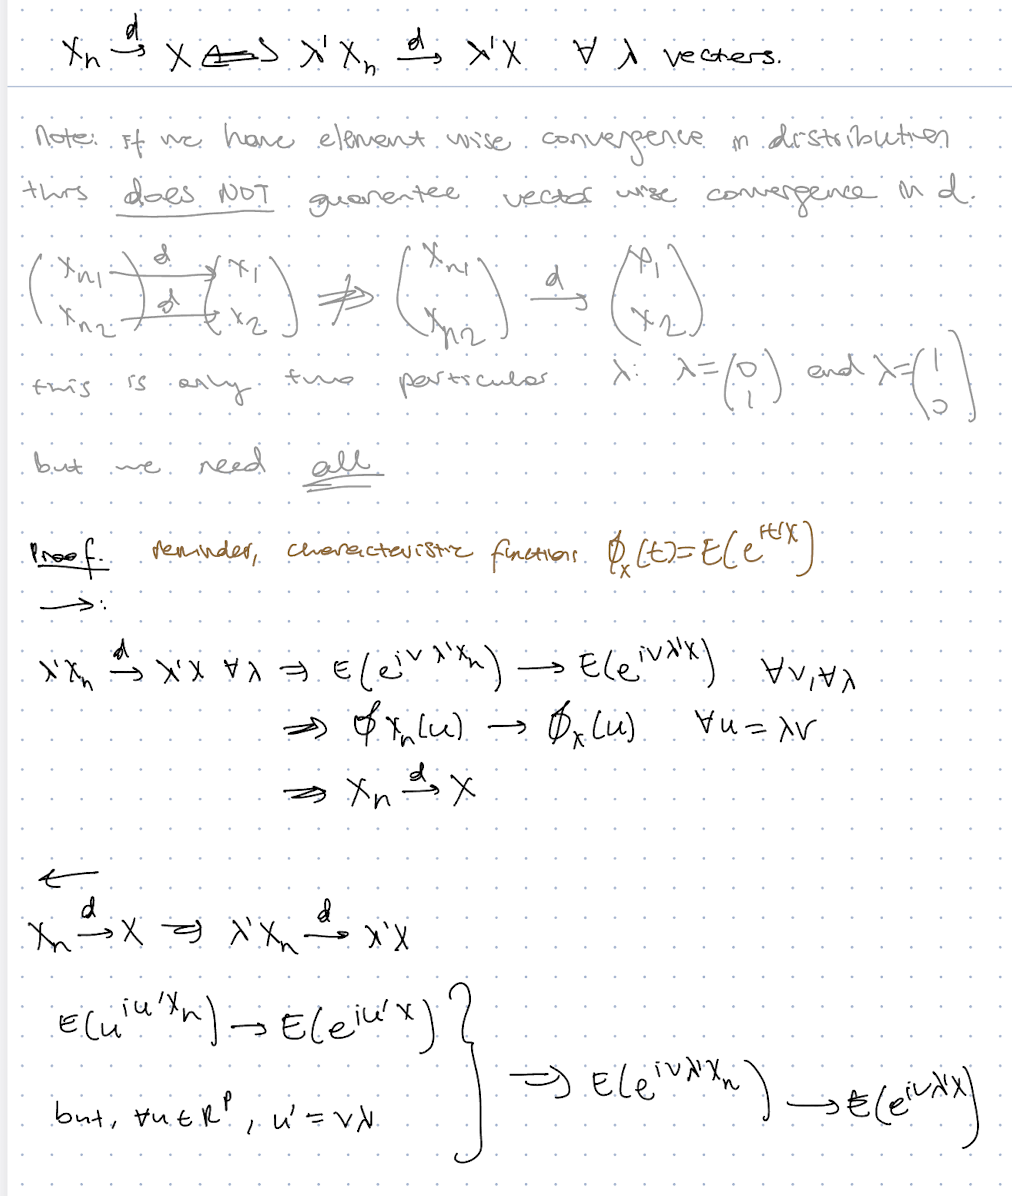 Xₙ →ᵈ X ⟺ λ'Xₙ →ᵈ λ'X ∀ λ vecters.
Note: If we have element wise convergence in distribution
this does NOT guarentee vector wise convergence in d.
(Xₙ₁ →ᵈ X₁ ; Xₙ₂ →ᵈ X₂) ⇏ (Xₙ₁ ; Xₙ₂) →ᵈ (X₁ ; X₂)
this is only two particular λ: λ=(0 ; 1) and λ=(1 ; 0)
but we need all
Proof. reminder, characteristic function φₓ(t)=E(e^{it'X})
→:
λ'Xₙ →ᵈ λ'X ∀λ ⇒ E(e^{ivλ'Xₙ}) → E(e^{ivλ'X}) ∀v,∀λ
⇒ φXₙ(u) → φₓ(u) ∀u = λv
⇒ Xₙ →ᵈ X
←
Xₙ →ᵈ X ⇒ λ'Xₙ →ᵈ λ'X
E(u^{iu'Xₙ}) → E(e^{iu'X}) }
⇒ E(e^{ivλ'Xₙ}) → E(e^{ivλ'X})
but, ∀u∈ℝᵖ, u' = vλ'